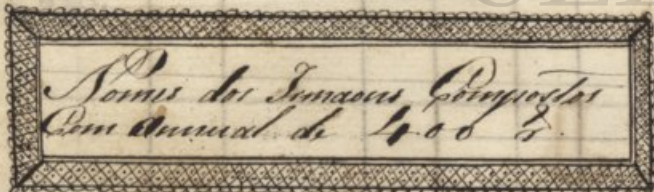 Nomes dos Irmaons Compostos
Com annual de 400 r.